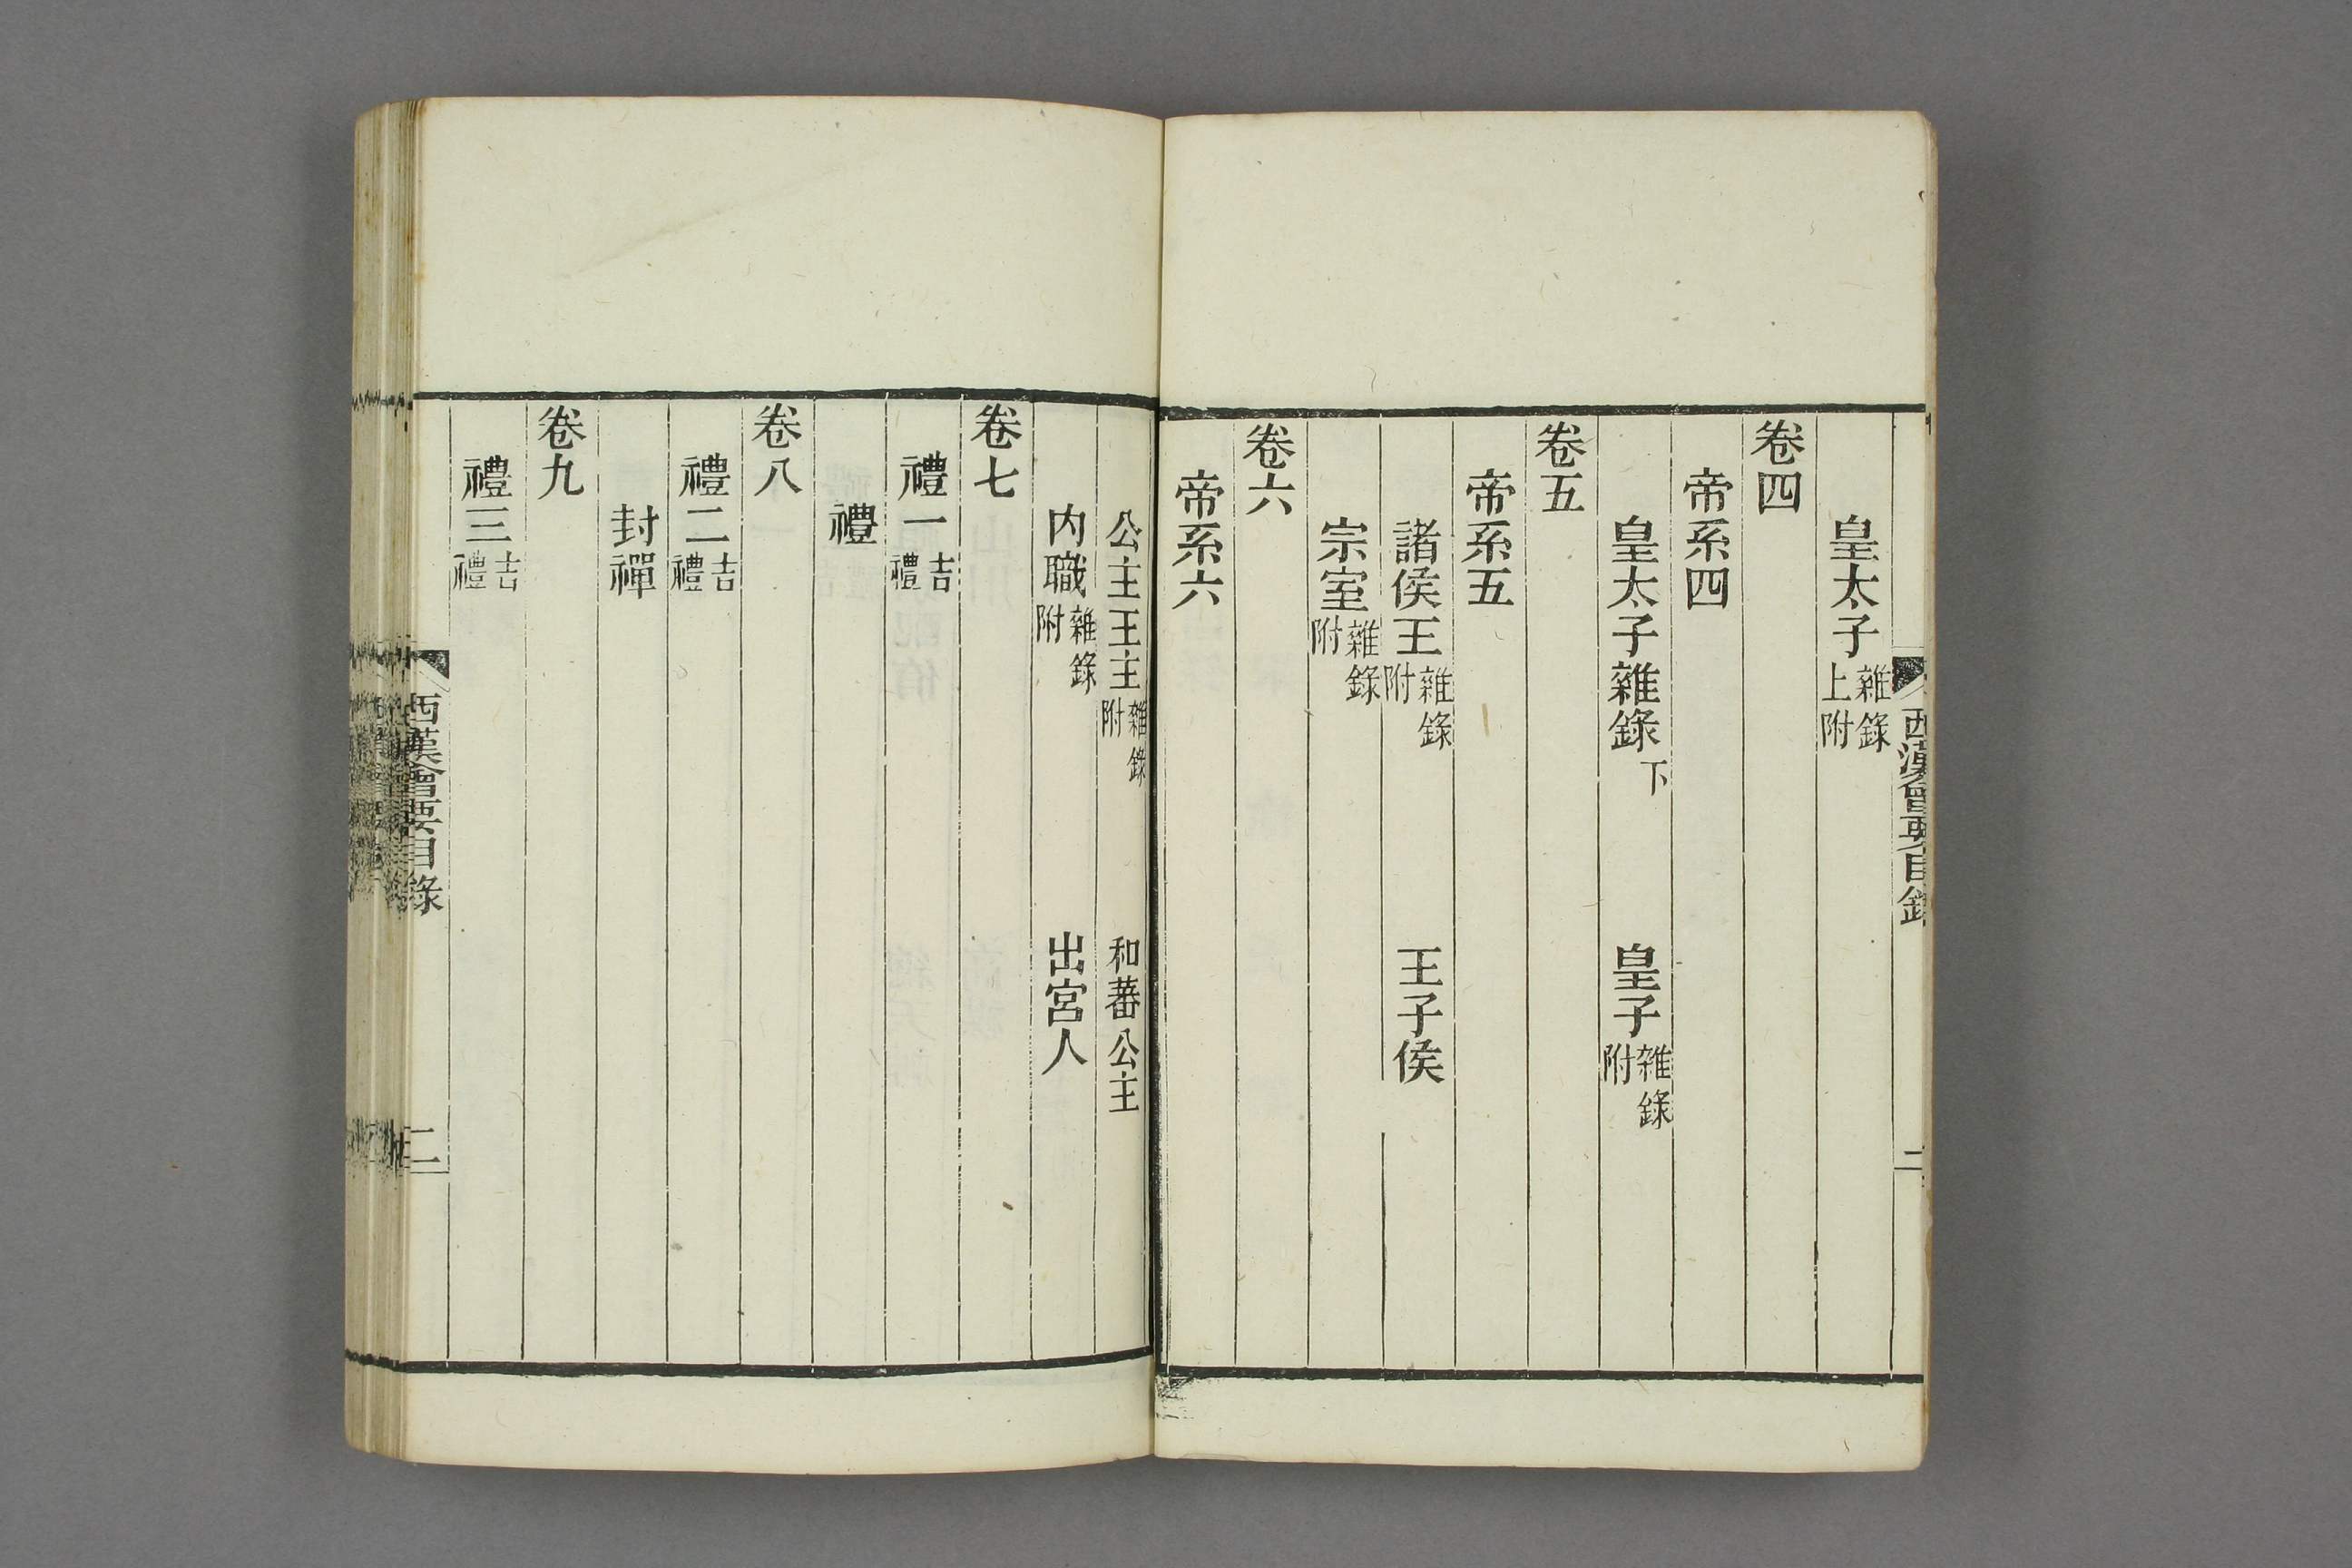 西漢會要目錄
二
皇太子雜錄上附
卷四
帝系四
皇太子雜錄下 皇子雜錄附
卷五
帝系五
諸侯王雜錄附 王子侯
宗室雜錄附
卷六
帝系六
公主王主雜錄附 和蕃公主
内職雜錄附 出宮人
卷七
禮一吉禮
禮
卷八
禮二吉禮
封禪
卷九
禮三吉禮
西漢會要目錄
二